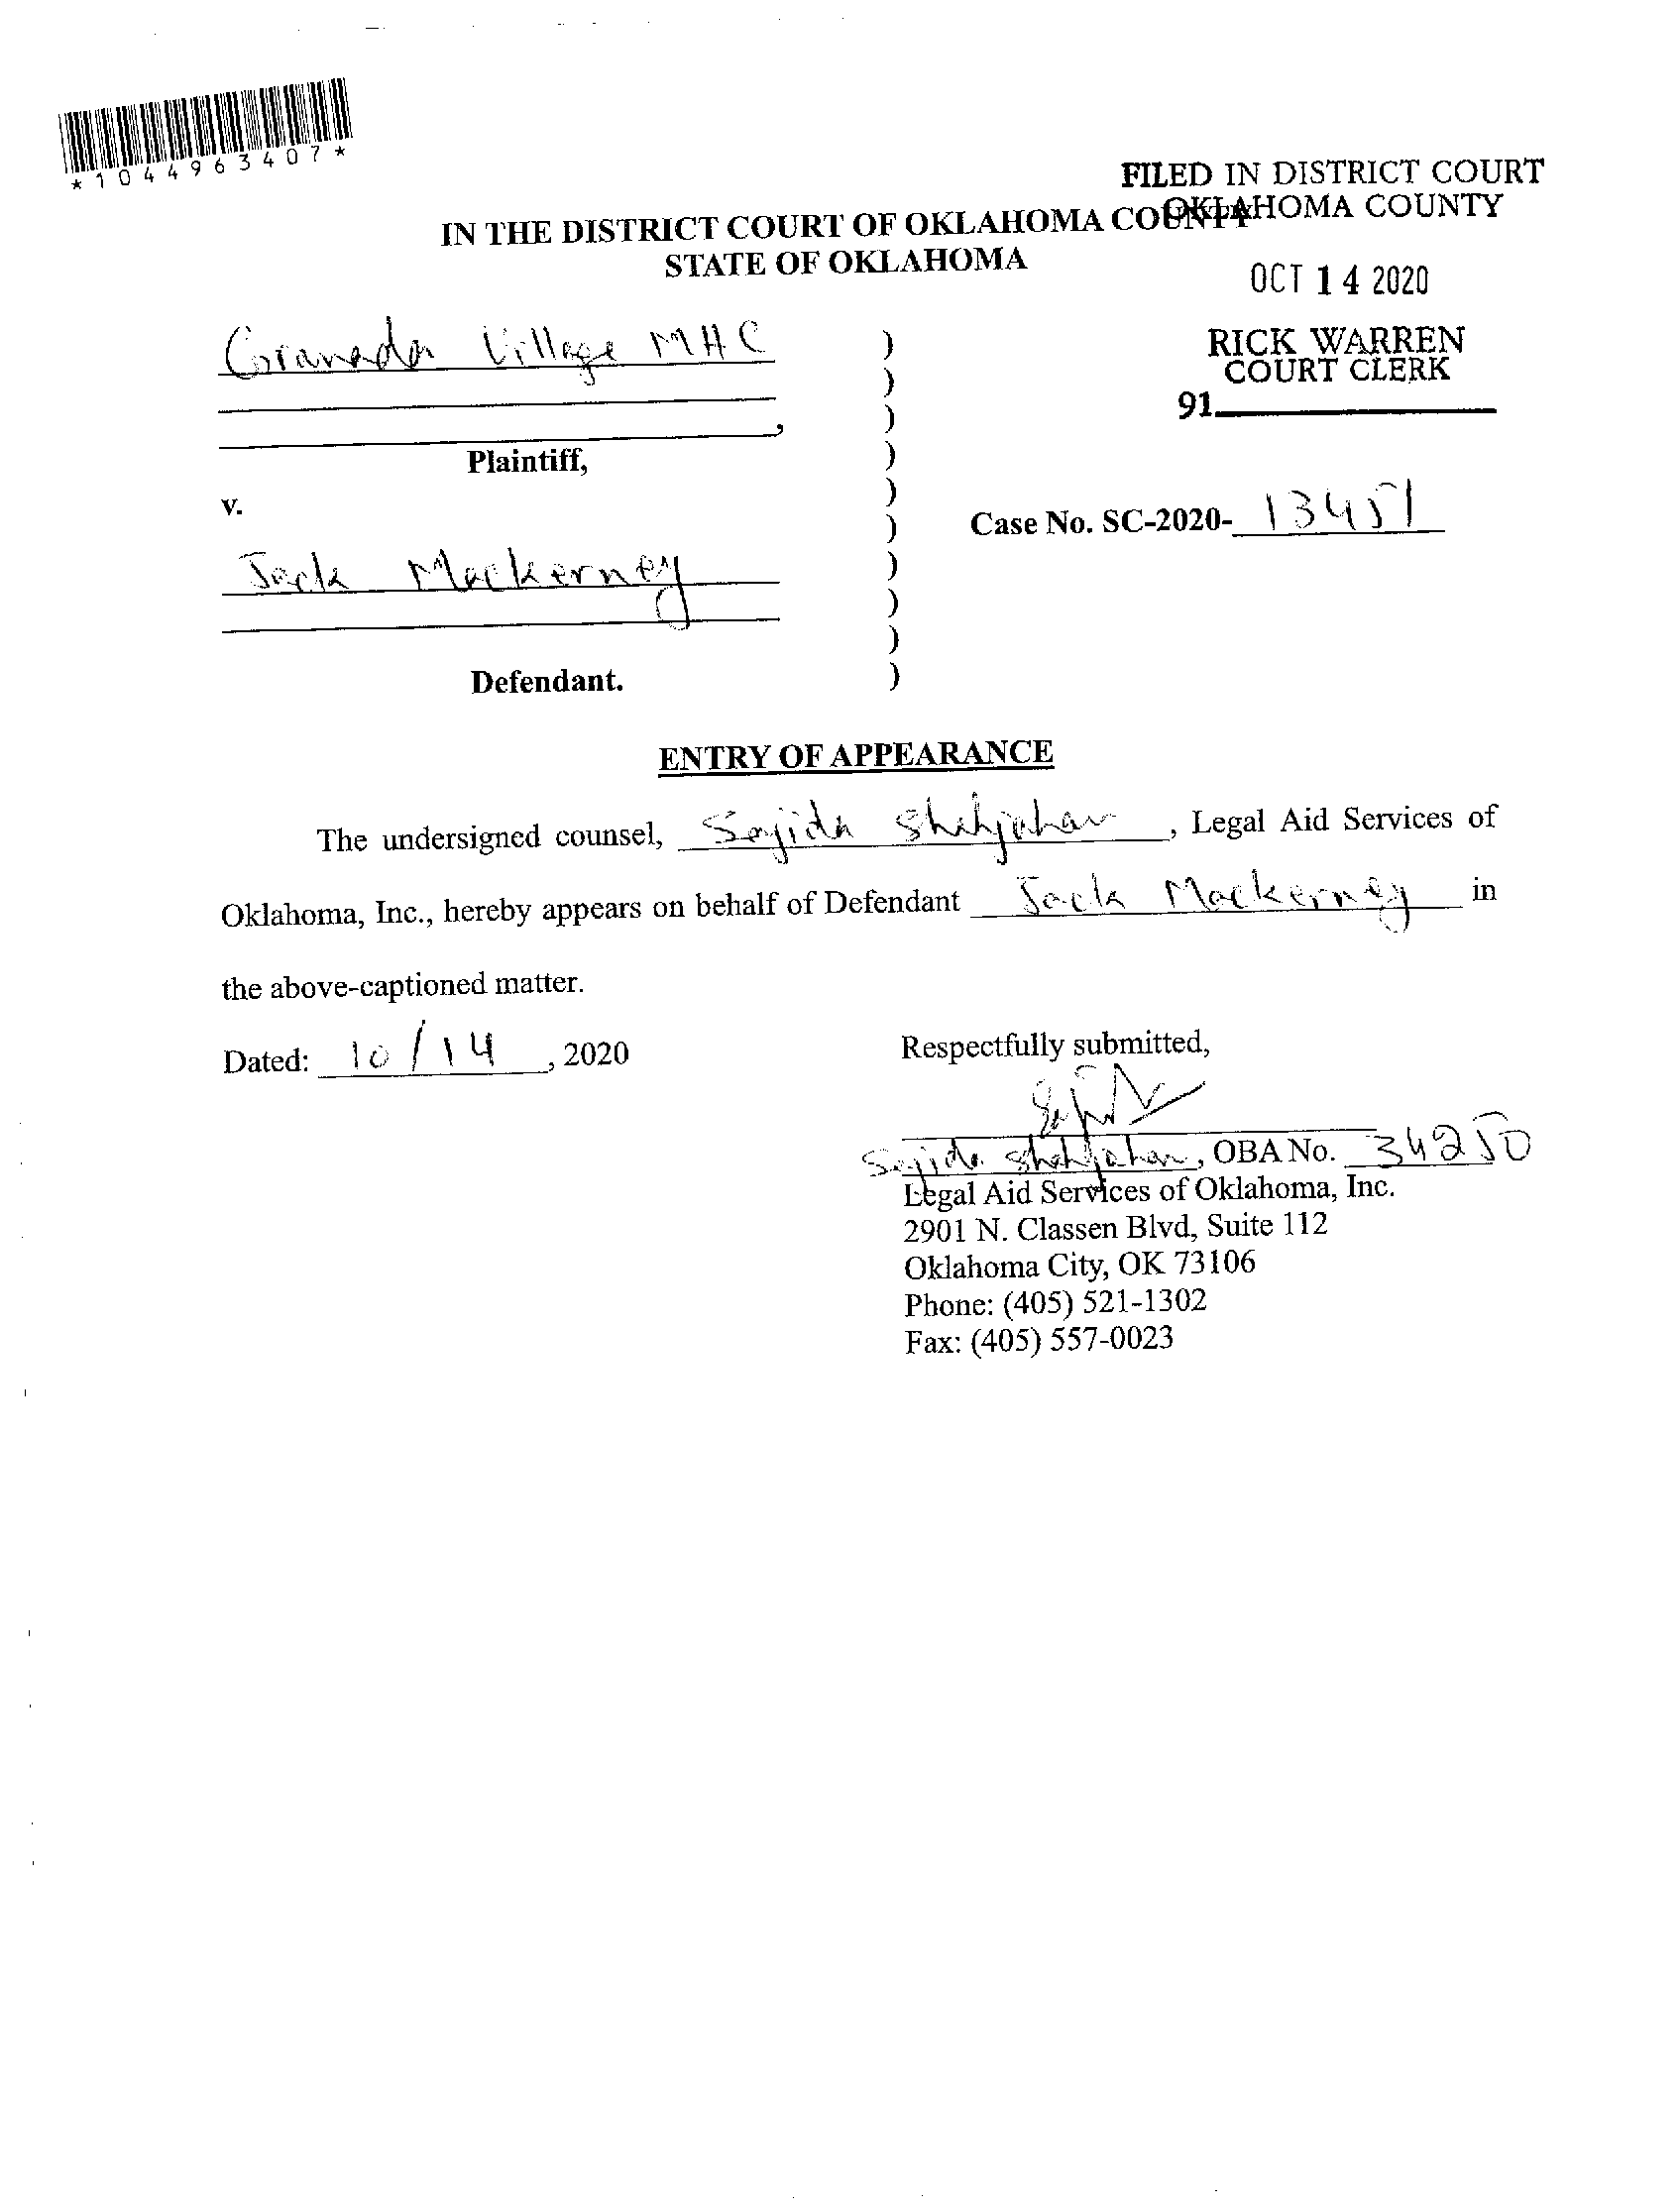 *1044963407*
FILED IN DISTRICT COURT
OKLAHOMA COUNTY
IN THE DISTRICT COURT OF OKLAHOMA COUNTY
STATE OF OKLAHOMA
OCT 14 2020
RICK WARREN
COURT CLERK
91
Granada Village MHC
,
Plaintiff,
v.
Case No. SC-2020- 13451
Jack Mackerney
Defendant.
)
)
)
)
)
)
)
)
)
)
ENTRY OF APPEARANCE
The undersigned counsel, Sajida Shahjahan, Legal Aid Services of
Oklahoma, Inc., hereby appears on behalf of Defendant Jack Mackerney in
the above-captioned matter.
Dated: 10/14, 2020
Respectfully submitted,
Sajida Shahjahan, OBA No. 34250
Legal Aid Services of Oklahoma, Inc.
2901 N. Classen Blvd, Suite 112
Oklahoma City, OK 73106
Phone: (405) 521-1302
Fax: (405) 557-0023